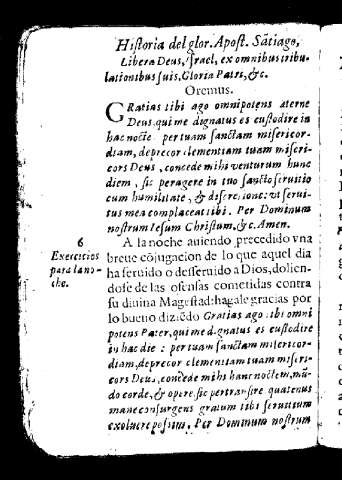 Historia del glor. Apost. Sãtiago,
Libera Deus, Israel, ex omnibus tribu-
lationibus suis, Gloria Patri, &c.
Oremus.
GRatias tibi ago omnipotens æterne
Deus, qui me dignatus es custodire in
hac nocte per tuam sanctam misericor-
diam, deprecor clementiam tuam miseri-
cors Deus, concede mihi venturum hunc
diem, sic peragere in tuo sancto seruitio
cum humilitate, & discretione: vt serui-
tus mea complaceat tibi. Per Dominum
nostrum Iesum Christum, &c. Amen.
6
Exercicios
para la no-
che.
A la noche auiendo precedido vna
breue cõjugacion de lo que aquel dia
ha seruido o desseruido a Dios, dolien-
dose de las ofensas cometidas contra
su diuina Magestad: hagale gracias por
lo bueno diziẽdo Gratias ago tibi omni
potens Pater, qui me dignatus es custodire
in hac die : per tuam sanctam misericor-
diam, deprecor clementiam tuam miseri-
cors Deus, concede mihi hanc noctem, mũ-
do corde, & opere, sic pertransire quatenus
mane consurgens gratum tibi seruitium
exoluere possim, Per Dominum nostrum